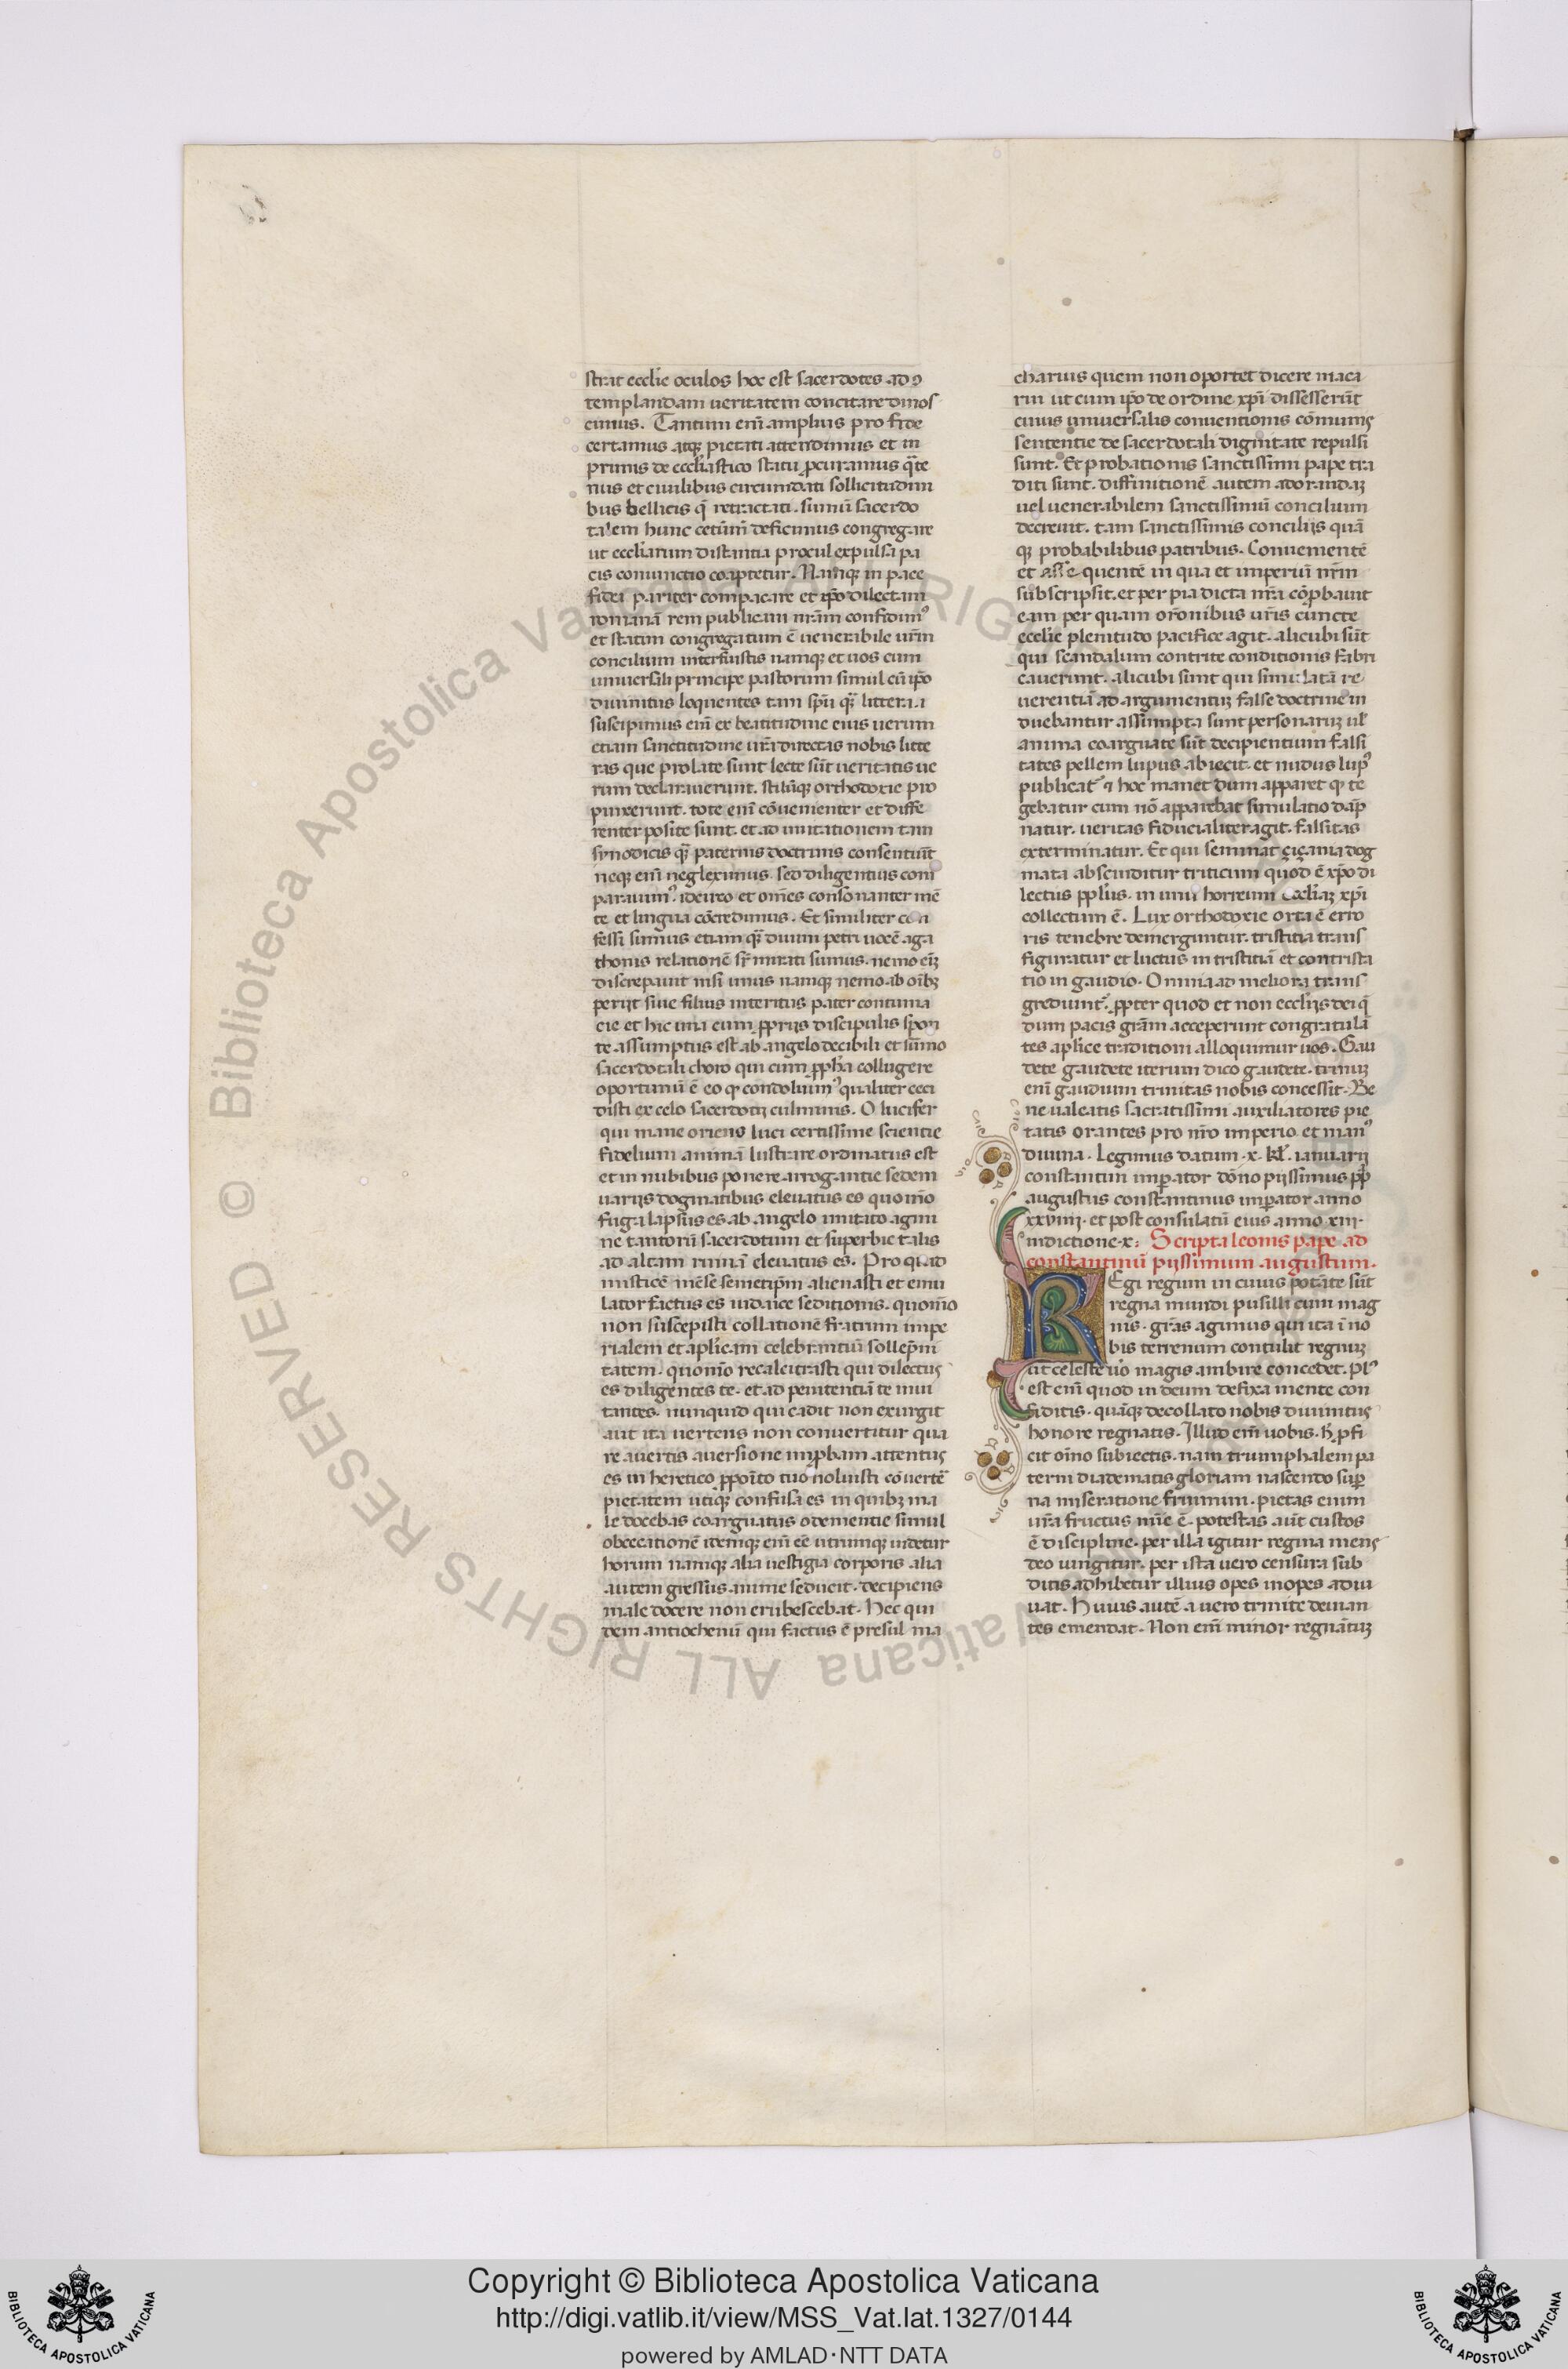 strat eccl̄ie oculos hoc est sacerdotes ad ꝯ
templandam ueritatem concitare dinos
cimus. Tantum eni᷑ amplius pro fide
certamus atqꝫ pietati attendimus et in
primis de eccl̄iastico statu ꝓcuramus q̄te
nus et ciuilibus circumdati sollicitudini
bus bellicis q̄ retractati. sumū sacerdo
talem hunc cetū deficimus congregare
ut eccl̄iarum distantia procul expulsa pa
cis coniunctio coaptetur. Namqꝫ in pace
fidei pariter compacare et ip̄o dilectam
romanā rem publicam nr̄am confidimꝰ
et statim congregatum ē uenerabile ur̄m
concilium interfuistis namqꝫ et uos cum
uniuersali principe pastorum simul cū ip̄o
diuinitus loquentes tam sp̄u q̄ȝ littera
suscipimus em̄ ex beatitudine eius uerum
etiam sanctitudine ur̄a directas nobis litte
ras que prolate sunt lecte sūt ueritatis ue
rum declarauerunt. stilūqꝫ orthodoxie pro
pinxerunt. tote em̄ cōuenienter et diffe
renter posite sunt. et ad imitationem tam
synodicis q̄ȝ paternis doctrinis consentiūt
neqꝫ em̄ negleximus. sed diligentius com
parauimꝰ. ideirco et om̄es consonanter mē
te et lingua cōcredimus. Et similiter con
fessi sumus etiam q̄ȝ diuini petri uocē aga
thonis relationē sr̄ mirati sumus. nemo em̄
discrepauit nisi unus namqꝫ nemo ab oībꝫ
perijt siue filius interitus pater contuma
cie et hic una cum ꝓprijs discipulis spon
te assumptus est ab angelo decibili et sūmo
sacerdotali choro qui cum ꝓph̄a collugere
oportunū ē eo qꝛ condoliumꝰ qualiter ceci
disti ex celo sacerdotij culminis. O lucifer
qui mane oriens luci certissime scientie
fidelium animā lustrare ordinatus est
et in nubibus ponere arrogantie sedem
uarijs dogmatibus eleuatus es quom̄o
fuga lapsus es ab angelo imitato agmi
ne tantorū sacerdotum et superbie talis
ad altam ruinā eleuatus es. Pro quid
misticē mēse semetip̄m alienasti et emu
lator factus es iudaice seditionis. quom̄o
non suscepisti collationē fratrum impe
rialem et apl̄icam celebrantiū sollep̄ni
tatem. quom̄o recalcitrasti qui dilectus
es diligentes te. et ad penitentiā te inui
tantes. nunquid qui cadit non exurgit
aut ita uertens non conuertitur qua
re auertis auersione imꝓbam attentus
es in heretico ꝓpoīto tuo noluisti cōuertē
pietatem utiqꝫ confusa es in quibꝫ ma
le docebas coarguatus o dementie simul
obcecationē idemqꝫ em̄ eē utrumqꝫ uidetur
horum namqꝫ alia uestigia corporis alia
autem gressus anime seducit. decipiens
male docere non erubescebat. Hec qui
dem antiochenū qui factus ē presul ma
charius quem non oportet dicere maca
rm ut cum ip̄o de ordine xp̄i dissesserūt
cuius uniuersalis conuentionis cōmunis
sententie de sacerdotali dignitate repulsi
sunt. Et probationis sanctissimi pape tra
diti sunt. diffinitionē autem adorandaꝫ
uel uenerabilem sanctissimū concilium
decreuit. tam sanctissimis concilijs quā
qꝫ probabilibus patribus. Conuenientē
et asse quentē in qua et imperiū nr̄m
subscripsit. et per pia dicta nr̄a cōꝓbauit
eam per quam or̄onibus ur̄is cuncte
eccl̄ie plenitudo pacifice agit. alicubi sūt
qui scandalum contrite conditionis fabri
cauerunt. alicubi sunt qui simulatā re
uerentiā ad argumentuꝫ false doctrine in
duebantur assumpta sunt personaruꝫ ul̄
anima coarguate sūt decipientium falsi
tates pellem lupus abiecit. et nudus lupꝰ
publicat᷑ ⁊ hoc manet dum apparet qꝛ te
gebatur cum nō apparebat simulatio dāp
natur. ueritas fiducialiter agit. falsitas
exterminatur. Et qui seminat çiçania dog
mata abscinditur triticum quod ē xp̄o di
lectus ppl̄us. in unū horreum eccl̄iaꝫ xp̄i
collectum ē. Lux orthodoxie orta ē erro
ris tenebre demerguntur. tristitia trans
figuratur et luctus in tristitiā et contrista
tio in gaudio. Omnia ad meliora trans
grediunt᷑. ꝓpter quod et non eccl̄ijs dei q̄
dum pacis gr̄am acceperunt congratulā
tes apl̄ice traditioni alloquimur uos. Gau
dete gaudete iterum dico gaudete. trinuꝫ
em̄ gaudium trinitas nobis concessit. Be
ne ualeatis sacratissimi auxiliatores pie
tatis orantes pro nr̄o imperio et manꝰ
diuina. Legimus datum .x. kl̄. ianuarij
constantin imꝑator dōno pijssimus ꝑp
augustus constantinus imꝑator anno
xxviiij. et post consulatū eius anno xiij.
indictione.x. Scripta leonis pape ad
constantinū pijssimum augustum.
REgi regum in cuius potāte sūt
regna mundi pusilli cum mag
nis. gr̄as agimus qui ita ī no
bis terrenum contulit regnuꝫ
ut celeste uo̅ magis ambire concedet. plꝰ
est em̄ quod in deum defixa mente con
fiditis. quāqꝫ decollato nobis diuinitus
honore regnatis. Illud em̄ uobis. hꝰ ꝓfi
cit oīno subiectis. nam triumphalem pa
terni diadematis gloriam nascendo suꝑ
na miseratione fruimini. pietas enim
ur̄a fructus mīe ē. potestas aūt custos
ē discipline. per illa igitur regina mens
deo uingitur. per ista uero censura sub
ditis adhibetur illius opes inopes adiu
uat. Huius autē a uero tramite deuian
tes emendat. Non em̄ minor regnātiuꝫ
© Biblioteca Apostolica Vaticana ALL RIGHTS RESERVED
Copyright © Biblioteca Apostolica Vaticana
http://digi.vatlib.it/view/MSS_Vat.lat.1327/0144
powered by AMLAD·NTT DATA
BIBLIOTECA APOSTOLICA VATICANA
BIBLIOTECA APOSTOLICA VATICANA